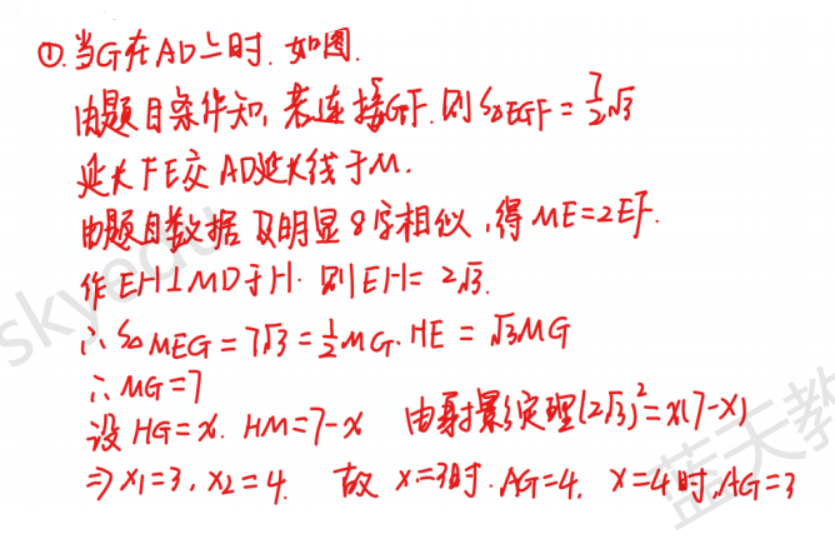 ①.当G在AD上时.如图.
由题目条件知,若连接GF.则S△EGF=7/2√3
延长FE交AD延长线于M.
由题目数据及明显8字相似,得ME=2EF.
作EH⊥MD于H.则EH=2√3.
∴S△MEG=7√3=1/2MG.HE=√3MG
∴MG=7
设HG=x.HM=7-x 由射影定理(2√3)²=x(7-x)
⇒x₁=3,x₂=4. 故x=3时.AG=4. x=4时,AG=3
skyedu
蓝天教